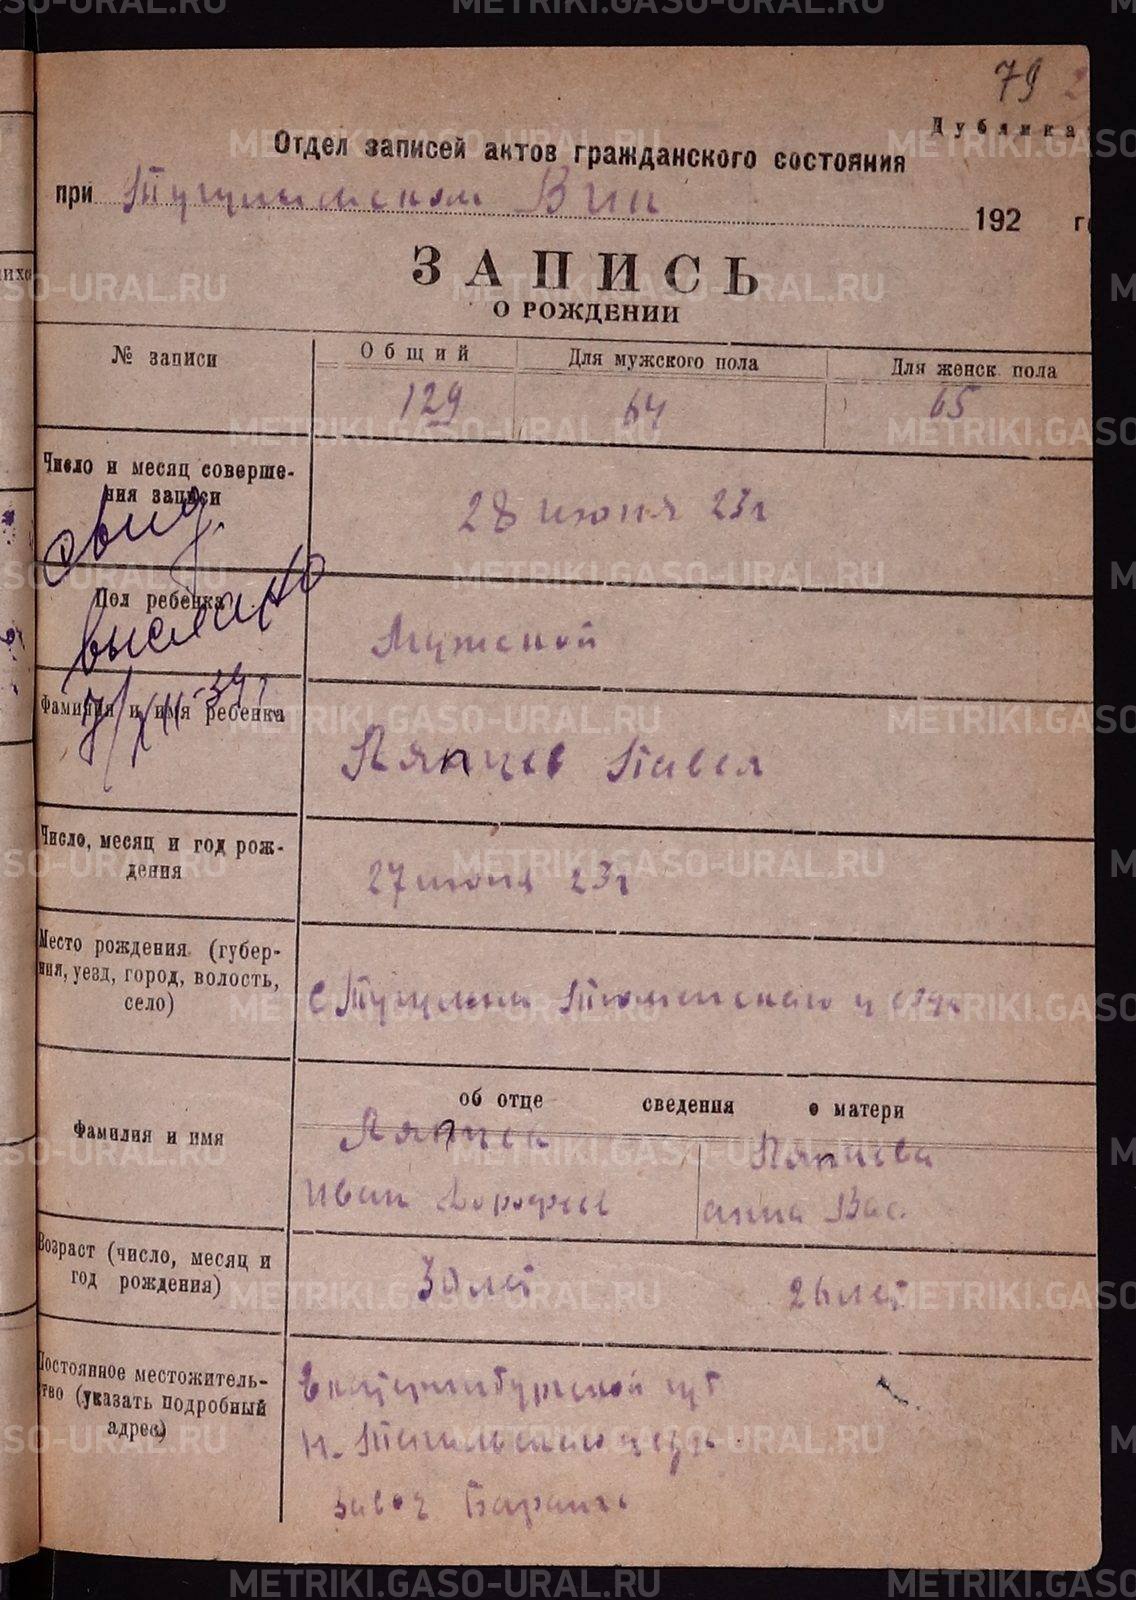 79
Дублика
Отдел записей актов гражданского состояния
при Тугулымском Вик 192 г
ЗАПИСЬ
О РОЖДЕНИИ
№ записи
Общий
Для мужского пола
Для женск. пола
129
64
65
Число и месяц соверше-
ния записи
28 июня 23 г
свид.
выслано
7/XII-34 г
Пол ребенка
Мужской
Фамилия и имя ребенка
Ляпцев Павел
Число, месяц и год рож-
дения
27 июня 23 г
Место рождения (губер-
ния, уезд, город, волость,
село)
с Тугулым Тюменского уезда
об отце сведения о матери
Фамилия и имя
Ляпцев
Иван Дорофеев
Ляпцева
анна Вас.
Возраст (число, месяц и
год рождения)
30 лет
26 лет
Постоянное местожитель-
тво (указать подробный
адрес)
Екатеринбургской губ
Н-Тагильского уезда
завод Баранча
METRIKI.GASO-URAL.RU